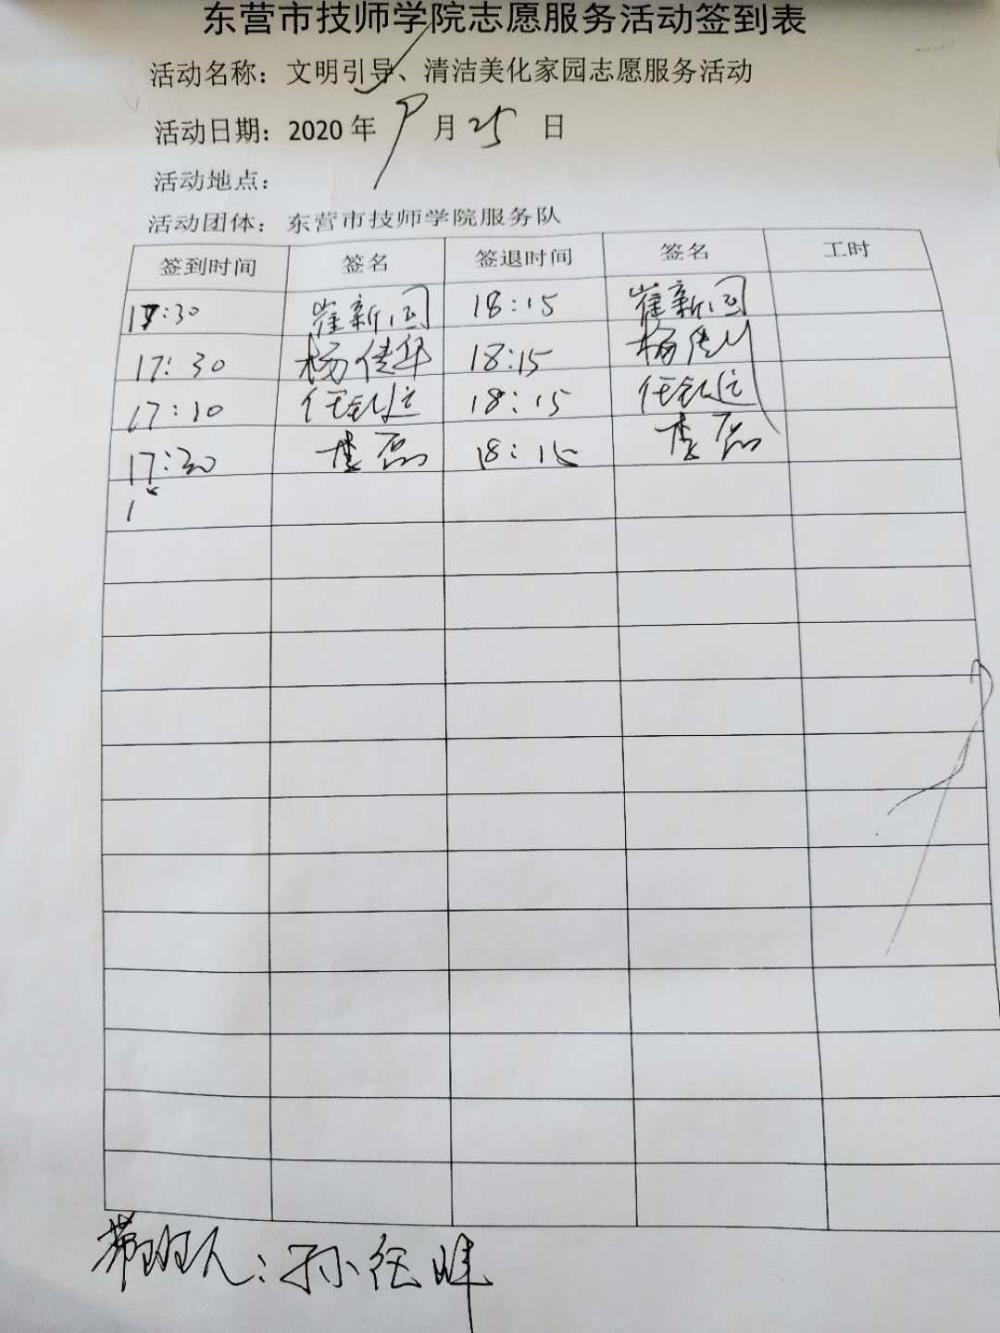 东营市技师学院志愿服务活动签到表
活动名称：文明引导、清洁美化家园志愿服务活动
活动日期：2020 年 9 月 25 日
活动地点：
活动团体：东营市技师学院服务队
签到时间 签名 签退时间 签名 工时
17:30 崔新国 18:15 崔新国
17:30 杨佳华 18:15 杨佳
17:30 任 18:15 任
17:30 李磊 18:15 李磊
带班人：孙